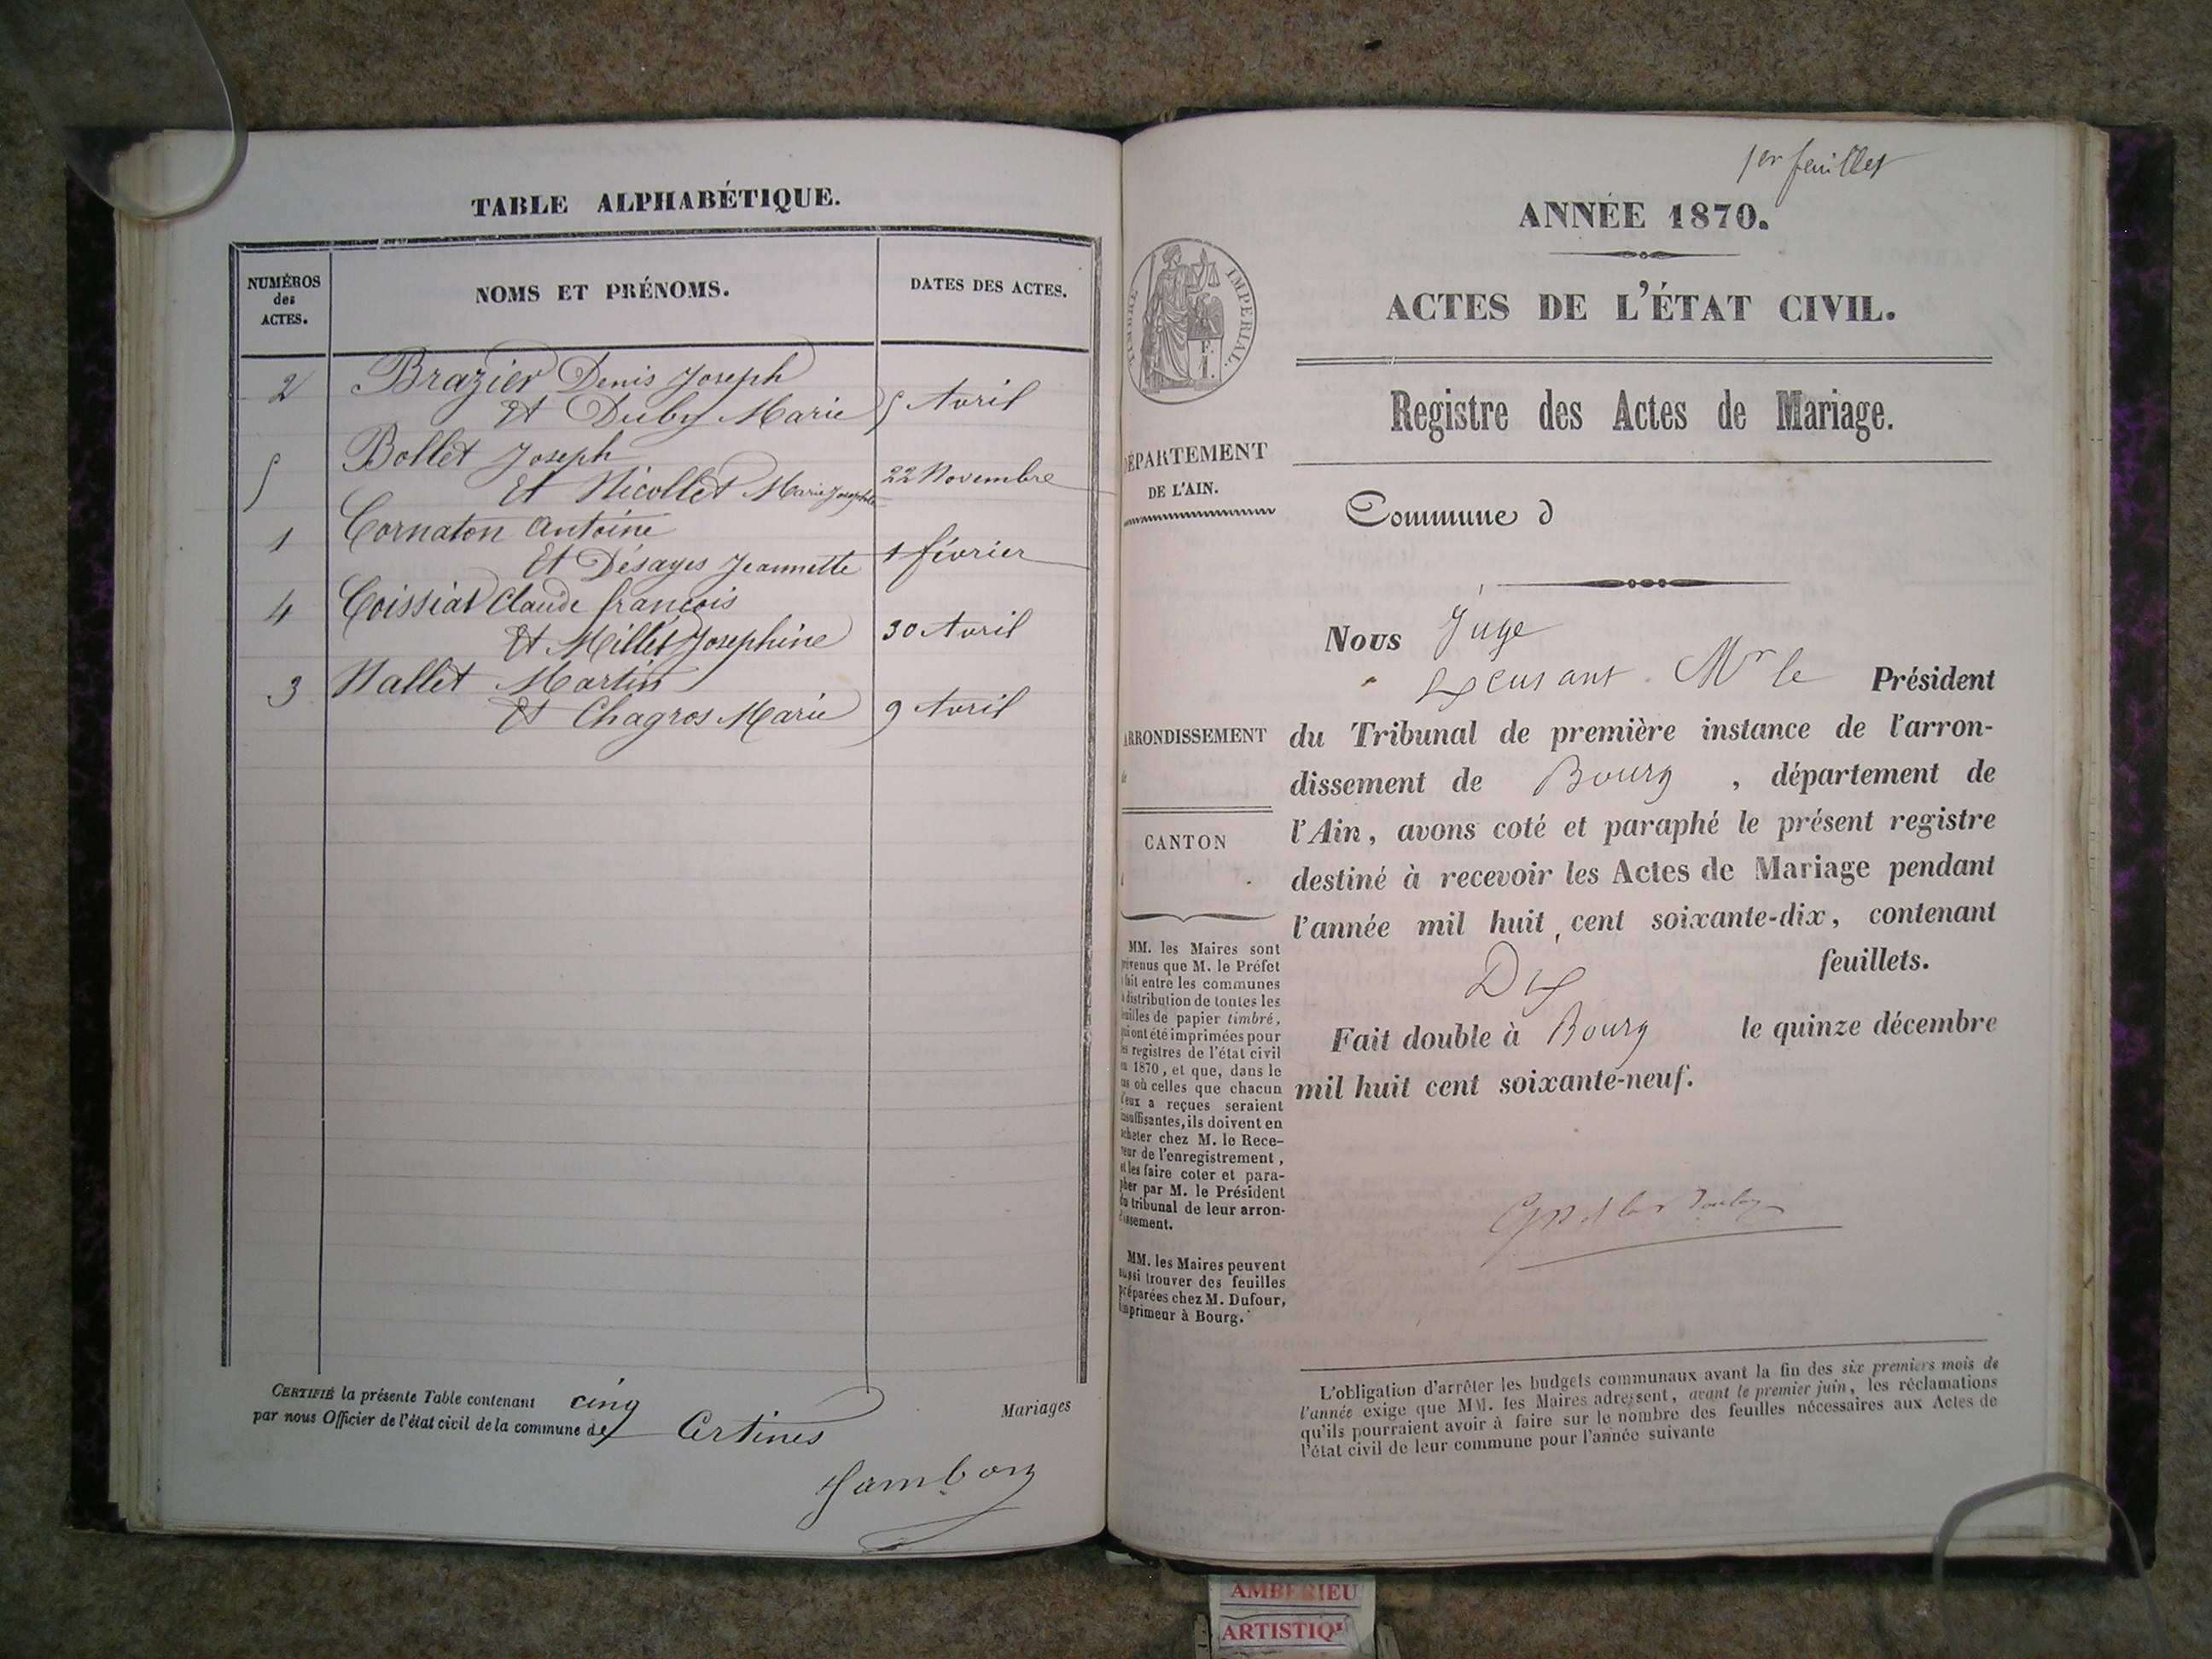 TABLE ALPHABÉTIQUE.
NUMÉROS
des
ACTES.
NOMS ET PRÉNOMS.
DATES DES ACTES.
2 Brazier Denis Joseph
Et Duby Marie 5 Avril
5 Bollet Joseph
Et Nicollet Marie Josephte 22 Novembre
1 Cornaton Antoine
Et Désayes Jeannette 1 février
4 Coissiat Claude françois
Et Millet Josephine 30 Avril
3 Nallet Martin
Et Chagros Marie 9 Avril
CERTIFIÉ la présente Table contenant cinq Mariages
par nous Officier de l'état civil de la commune de Certines
Jambon
1er feuillet
ANNÉE 1870.
TIMBRE IMPÉRIAL.
ACTES DE L'ÉTAT CIVIL.
Registre des Actes de Mariage.
DÉPARTEMENT
DE L'AIN.
Commune d
ARRONDISSEMENT
CANTON
Nous Juge
Mr le Président
du Tribunal de première instance de l'arron-
dissement de Bourg, département de
l'Ain, avons coté et paraphé le présent registre
destiné à recevoir les Actes de Mariage pendant
l'année mil huit cent soixante-dix, contenant
Dix feuillets.
Fait double à Bourg le quinze décembre
mil huit cent soixante-neuf.
MM. les Maires sont
prévenus que M. le Préfet
a fait entre les communes
la distribution de toutes les
feuilles de papier timbré,
qui ont été imprimées pour
les registres de l'état civil
en 1870, et que, dans le
cas où celles que chacun
d'eux a reçues seraient
insuffisantes, ils doivent en
acheter chez M. le Rece-
veur de l'enregistrement,
et les faire coter et para-
pher par M. le Président
du tribunal de leur arron-
dissement.
MM. les Maires peuvent
aussi trouver des feuilles
préparées chez M. Dufour,
imprimeur à Bourg.
L'obligation d'arrêter les budgets communaux avant la fin des six premiers mois de
l'année exige que MM. les Maires adressent, avant le premier juin, les réclamations
qu'ils pourraient avoir à faire sur le nombre des feuilles nécessaires aux Actes de
l'état civil de leur commune pour l'année suivante
AMBERIEU
ARTISTIQ